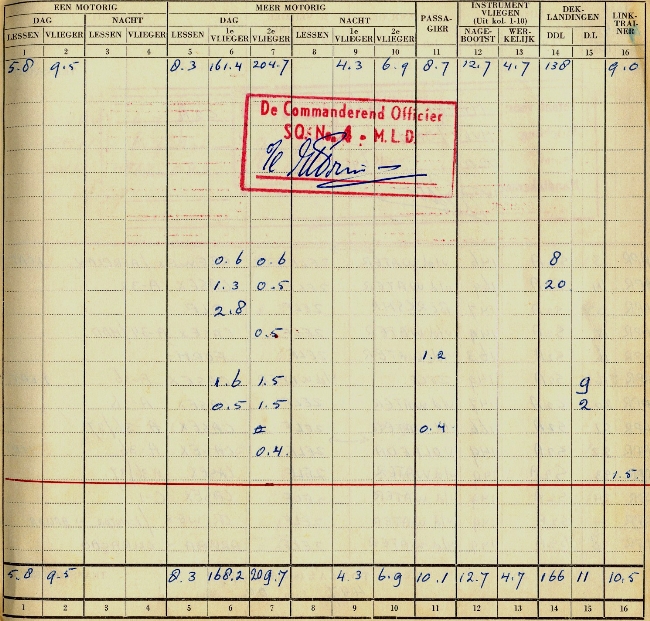 EEN MOTORIG MEER MOTORIG PASSA-GIER INSTRUMENT VLIEGEN (Uit kol. 1-10) DEK-LANDINGEN LINK-TRAI-NER
DAG NACHT DAG NACHT
LESSEN VLIEGER LESSEN VLIEGER LESSEN 1e VLIEGER 2e VLIEGER LESSEN 1e VLIEGER 2e VLIEGER NAGE-BOOTST WER-KELIJK DDL D.L
1 2 3 4 5 6 7 8 9 10 11 12 13 14 15 16
5.8 9.5 8.3 161.4 204.7 4.3 6.9 8.7 12.7 4.7 138 9.0
De Commanderend Officier
SQ. No. 4 - M.L.D.
0.6 0.6 8
1.3 0.5 20
2.8
0.5
1.2
1.6 1.5 9
0.5 1.5 2
0.4
0.4
1.5
5.8 9.5 8.3 168.2 209.7 4.3 6.9 10.1 12.7 4.7 166 11 10.5
1 2 3 4 5 6 7 8 9 10 11 12 13 14 15 16